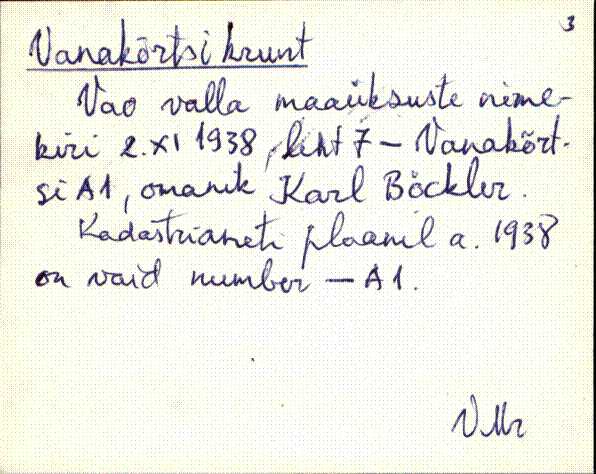 3
Vanakõrtsi krunt
Vao valla maaüksuste nime-
kiri 2.XI 1938, leht 7 – Vanakõrt-
si A1, omanik Karl Böckler.
Kadastriameti plaanil a. 1938
on vaid number – A1.
VMr